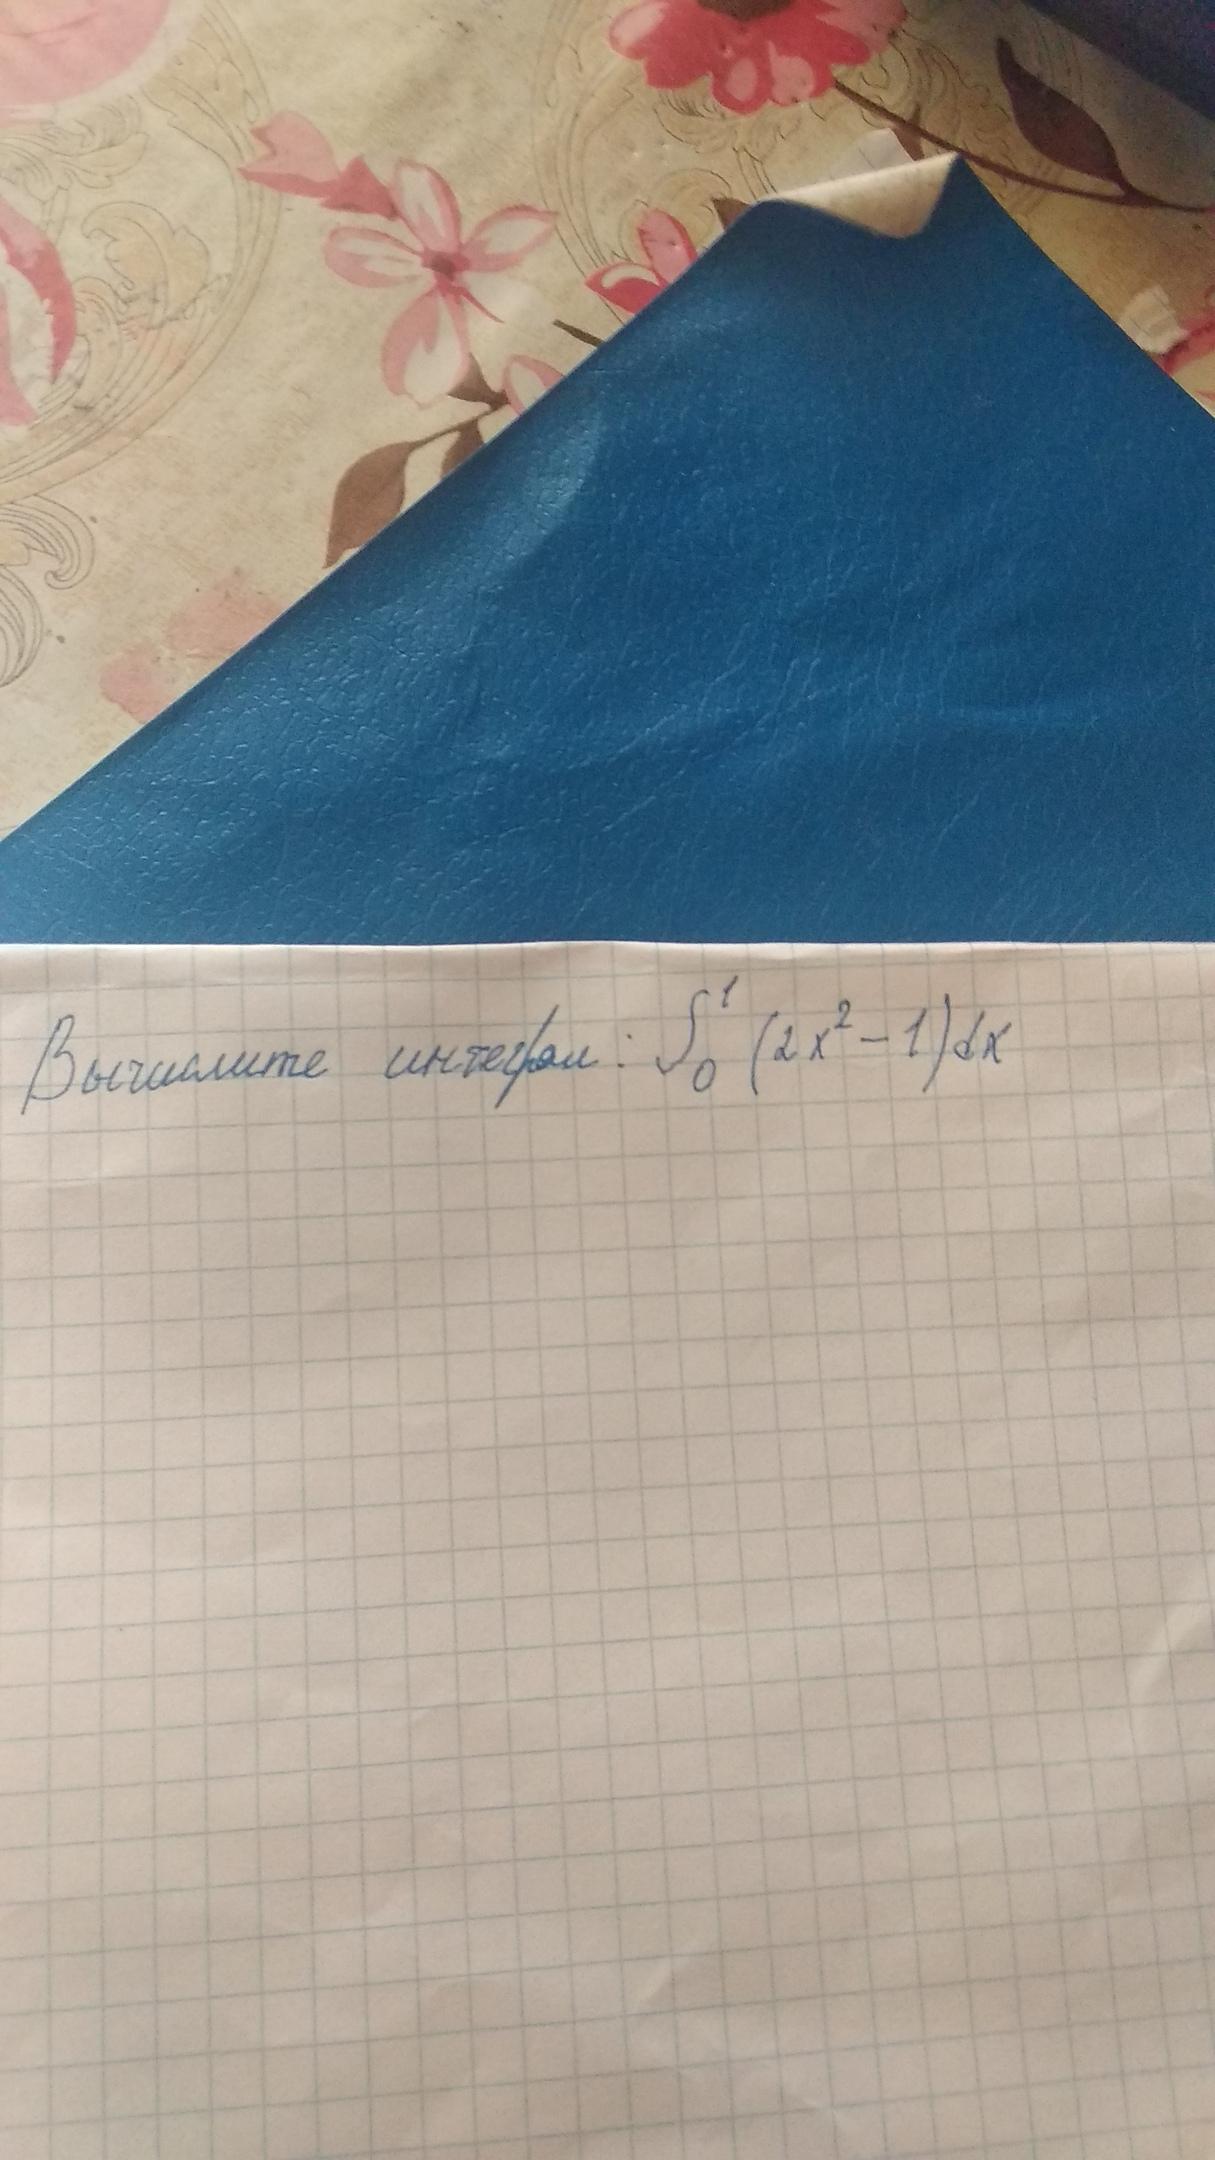 Вычислите интеграл: ∫₀¹ (2x² − 1)dx